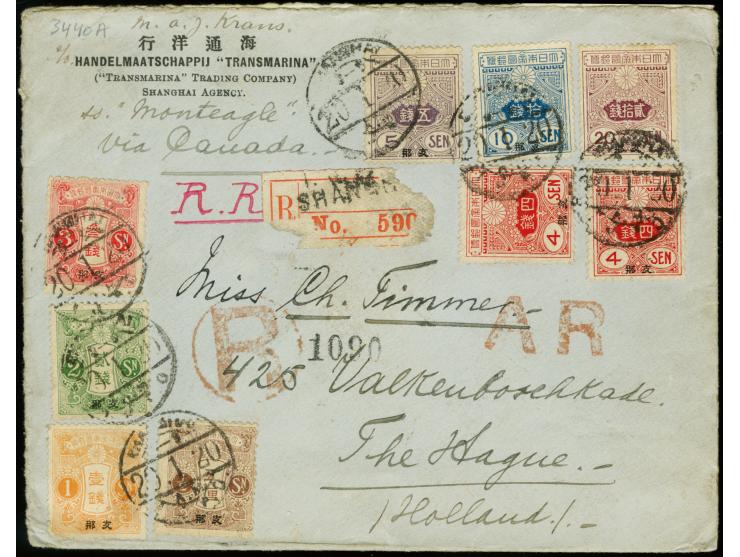 3440A
m. a. J. Krans.
行洋通海
c/o
HANDELMAATSCHAPPIJ "TRANSMARINA"
("TRANSMARINA" TRADING COMPANY)
SHANGHAI AGENCY.
ss. "Monteagle"
via Canada.
R.R
R.
SHAN
No. 590
大日本帝國郵便
五錢
5 SEN
支那
大日本帝國郵便
拾錢
10 SEN
支那
大日本帝國郵便
貳拾錢
20 SEN
支那
四錢
4 SEN
支那
四錢
4 SEN
支那
3 Sn
支那
2 Sn
支那
1
壹錢
支那
Sn
支那
SHANGHAI
20 1
Miss Ch. Timmer
R
1090
AR
425 Valkenboschkade.
The Hague.-
/Holland./-